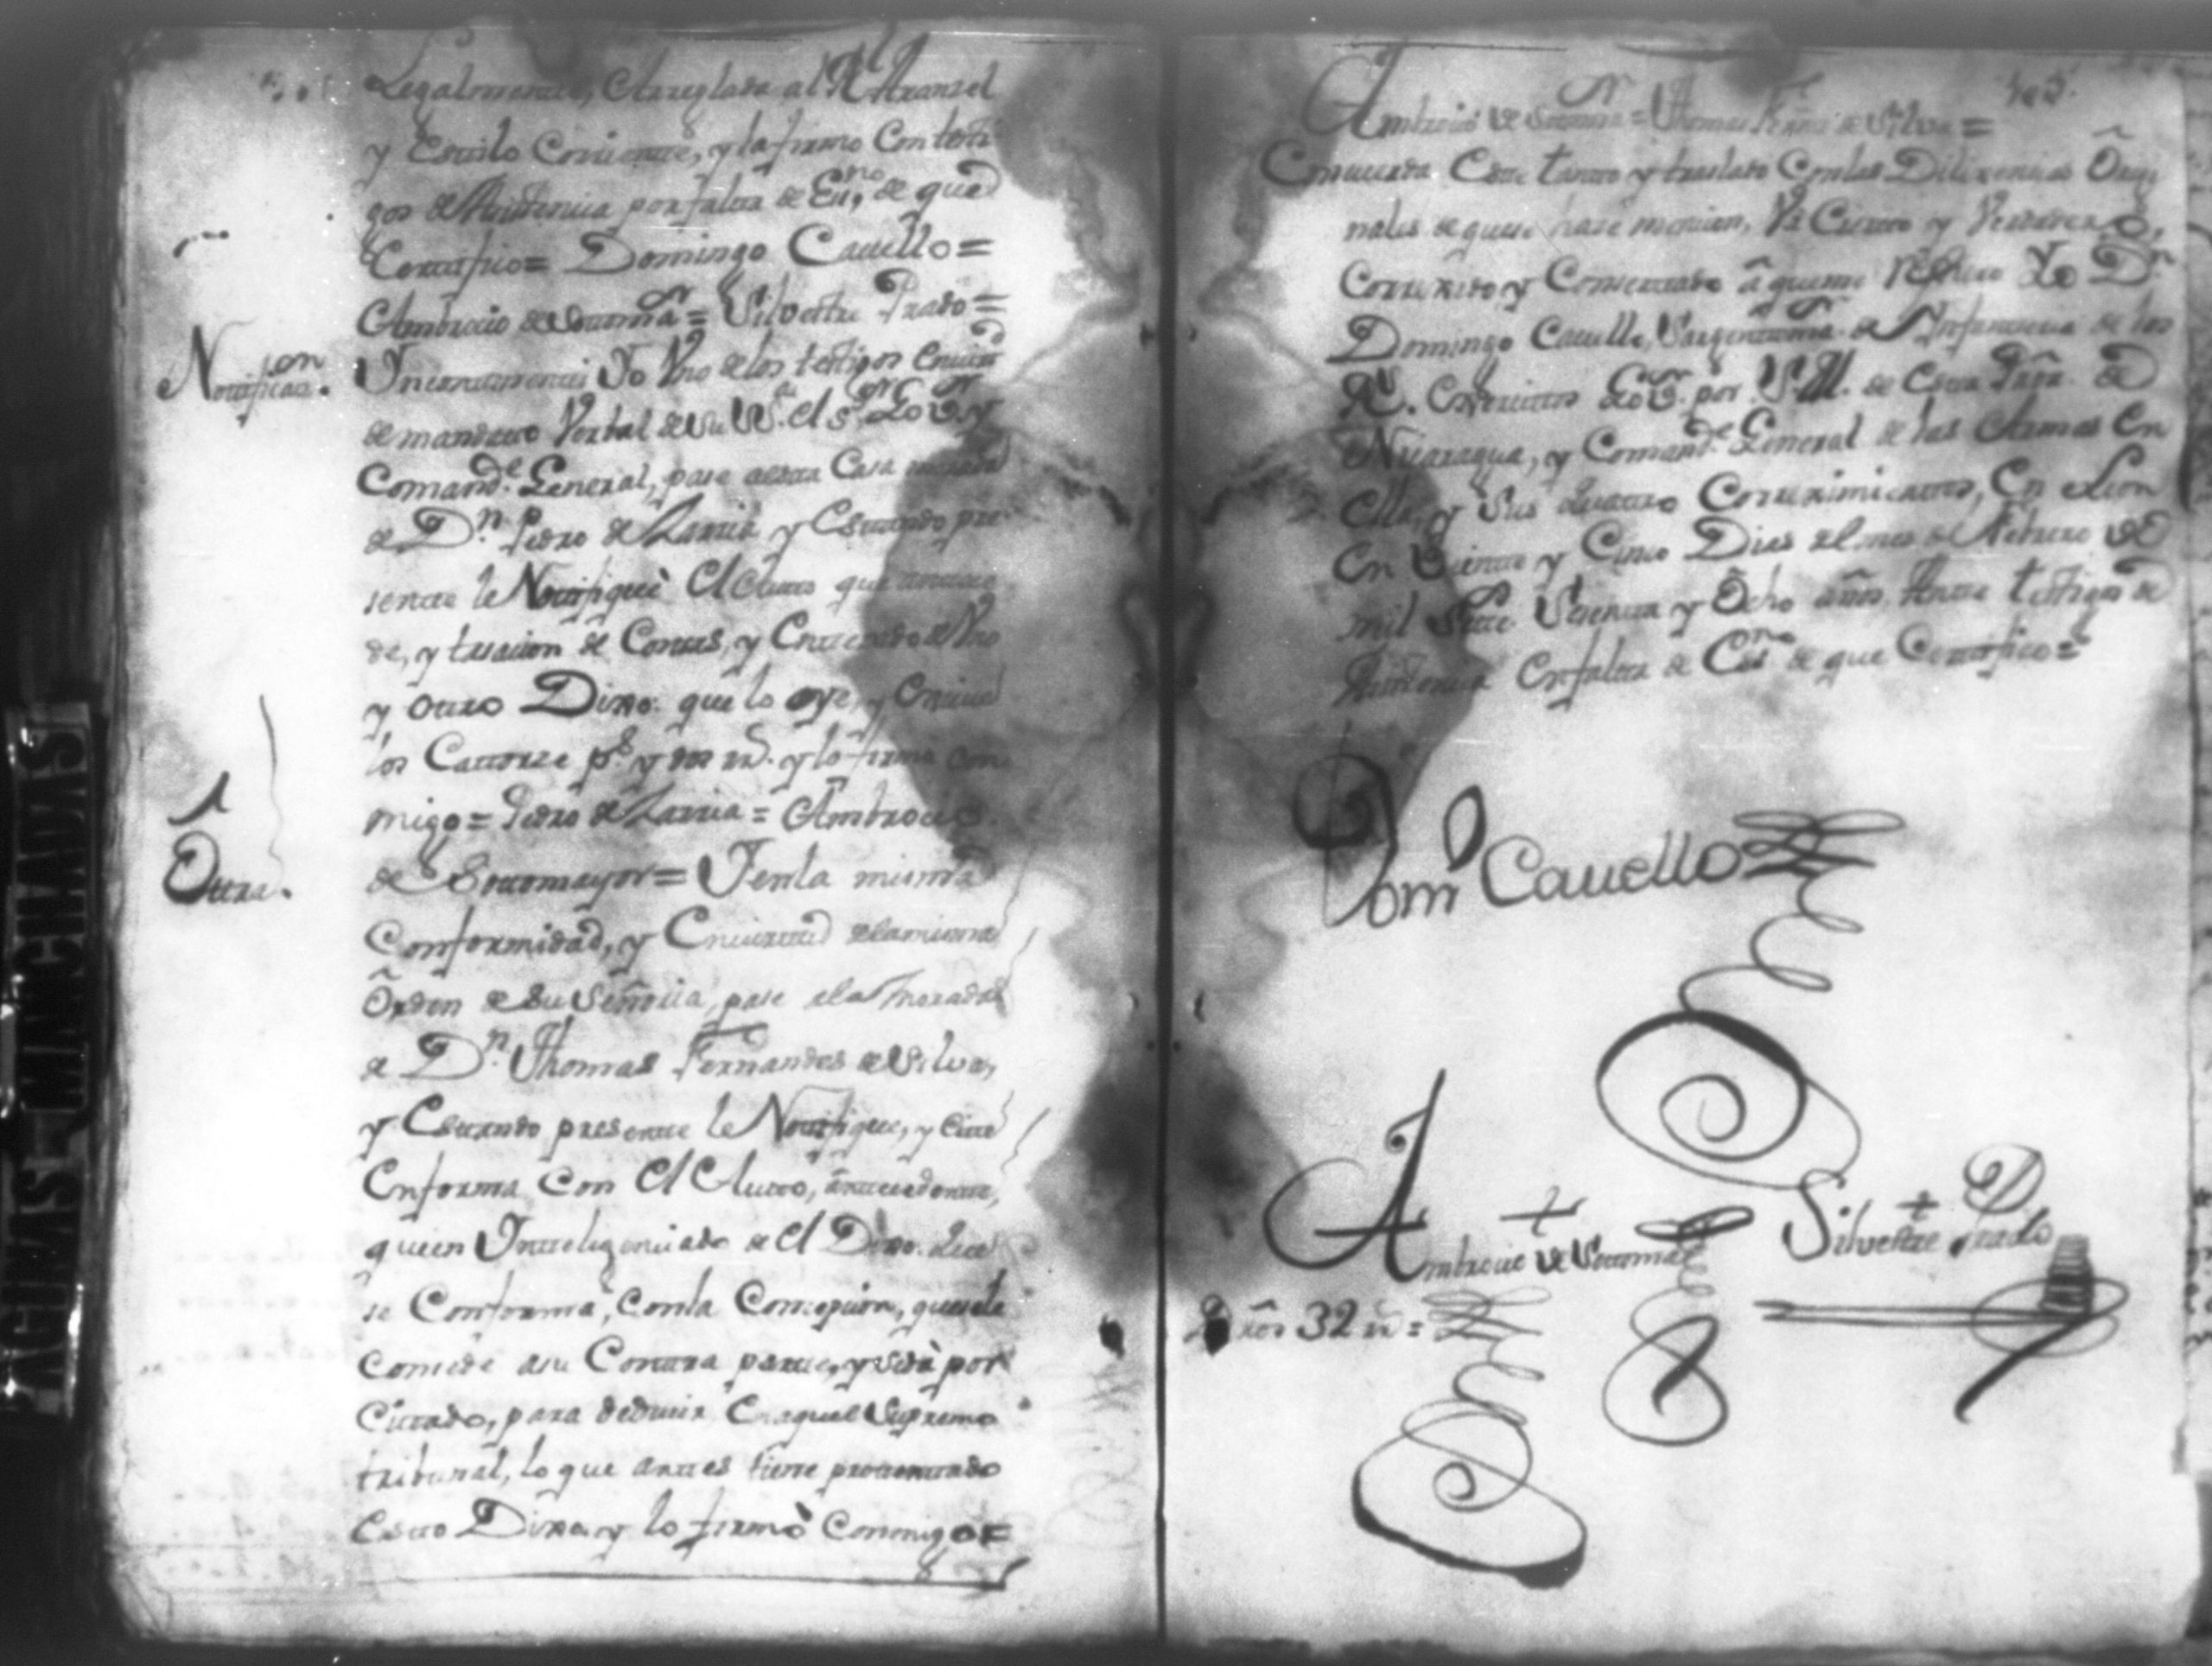 Legalmente, Arreglada al Rl. Aransel
y Estilo Corriente, y la firmo Con testi
gos de Asistencia por falta de Esno. de que
Certifico= Domingo Cavello=
Ambrocio de Sotomar.= Silvestre Prado=
Notificaon.
Incontinenti Yo Uno de los testigos
de mandato Verbal de su Sa. el Sr. Govor. y
Comande. General, pase a esta Casa morada
de Dn. Pedro de Larria y Estando pre
sente le Notifiquè El Auto que antece
de, y tasacion de Costas, y Enterado de Uno
y Otro Dixo: que lo oye, y
los Catorze ps. y dos rs. y lo firma con
migo= Pedro de Larria= Ambrocio
Otra.
de Sotomayor= Y en la misma
Conformidad, y En virtud de la misma
Ôrden de Su Señoria, pase a la Morada
de Dn. Thomas Fernandes de Silva,
y Estando presente le Notifique, y Cite
En forma Con El Auto, antecedente,
quien Ynteligenciado de el Dixo. que
se Conforma, Con la que se le
Concede a su Contra parte, y se dà por
Citado, para deducir En aquel Supremo
tribunal, lo que antes tiene
Esto Dixo, y lo firmò Conmigo=
Ambrocio de Sotomar.= Thomas Fernz. de Silva=
Concuerda Este tanto y traslado Con las Dilixencias Ôrigi
nales de que se hase mencion, Va Cierto y Verdadero,
Correxido, y Consertado â que me refiero Yo Dn.
Domingo Cavello, Sargento mar. de Ynfanteria de los
Rs. Exercitos Govor. por S.M. de Esta Prova. de
Nicaragua, y Comande. General de las Armas En
Ella, y Sus Quatro Correximientos, En Leon
En Veinte y Cinco Dias del mes de Febrero de
mil Sete. Setenta y Ôcho años Ante testigos de
Asistencia En falta de Esno. de que Certifico=
Domo. Cavello
Ambrocio de Sotomar.
Silvestre Prado
Dros 32 rs=